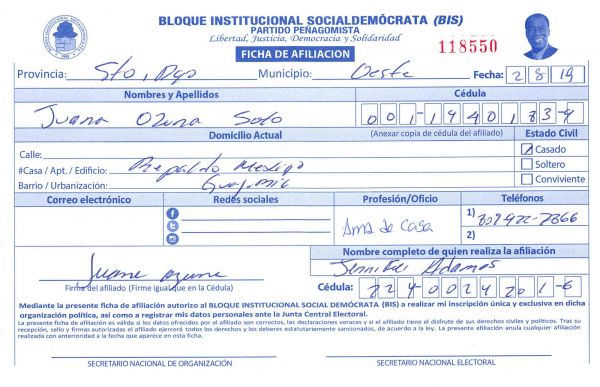 BLOQUE INSTITUCIONAL SOCIALDEMÓCRATA (BIS)
PARTIDO PEÑAGOMISTA
Libertad, Justicia, Democracia y Solidaridad
FICHA DE AFILIACION
118550
Provincia: Sto, Dgo Municipio: Oeste Fecha: 2 8 19
Nombres y Apellidos Cédula
Juana Ozuna Soto 001-1940183-9
Domicilio Actual (Anexar copia de cédula del afiliado) Estado Civil
Calle: Casado
#Casa / Apt. / Edificio: Respaldo Mexiqo Soltero
Barrio / Urbanización: Conviviente
Correo electrónico Redes sociales Profesión/Oficio Teléfonos
Ama de Casa 1)
2)
Nombre completo de quien realiza la afiliación
Juana ozuna Jennifer Adames
Firma del afiliado (Firme igual que en la Cédula) Cédula: 2240024201-6
Mediante la presente ficha de afiliación autorizo al BLOQUE INSTITUCIONAL SOCIAL DEMÓCRATA (BIS) a realizar mi inscripción única y exclusiva en dicha
organización política, así como a registrar mis datos personales ante la Junta Central Electoral.
La presente ficha de afiliación es válida si los datos ofrecidos por el afiliado son correctos, las declaraciones veraces y si el titular tiene el disfrute de sus derechos civiles y políticos. Tras su
recepción, sello y firmas autorizadas el afiliado ejercerá todos los derechos y los deberes estatutariamente sancionados, de acuerdo a la ley. La presente afiliación anula cualquier afiliación
realizada con anterioridad a la fecha que aparece en esta ficha.
SECRETARIO NACIONAL DE ORGANIZACIÓN SECRETARIO NACIONAL ELECTORAL